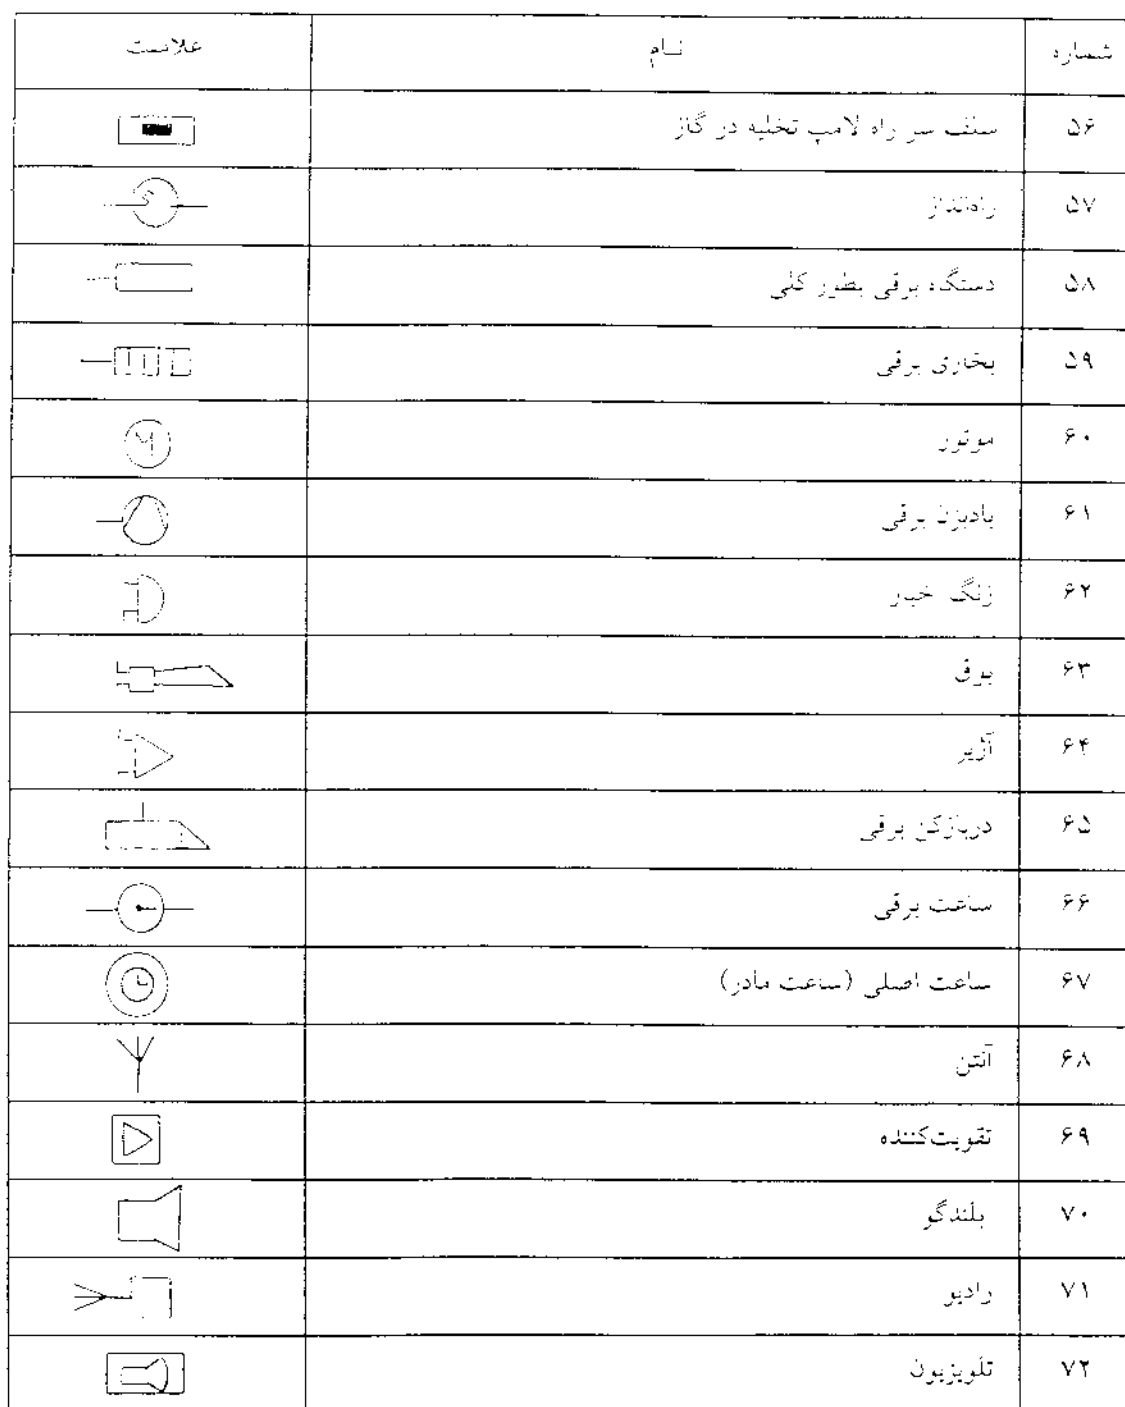 شماره نام علامت
۵۶ سلف سر راه لامپ تخلیه در گاز
۵۷ راه‌انداز
۵۸ دستگاه برقی بطور کلی
۵۹ بخاری برقی
۶۰ موتور M
۶۱ بادبزن برقی
۶۲ زنگ خبار
۶۳ بوق
۶۴ آژیر
۶۵ دربازکن برقی
۶۶ ساعت برقی
۶۷ ساعت اصلی (ساعت مادر)
۶۸ آنتن
۶۹ تقویت‌کننده
۷۰ بلندگو
۷۱ رادیو
۷۲ تلویزیون